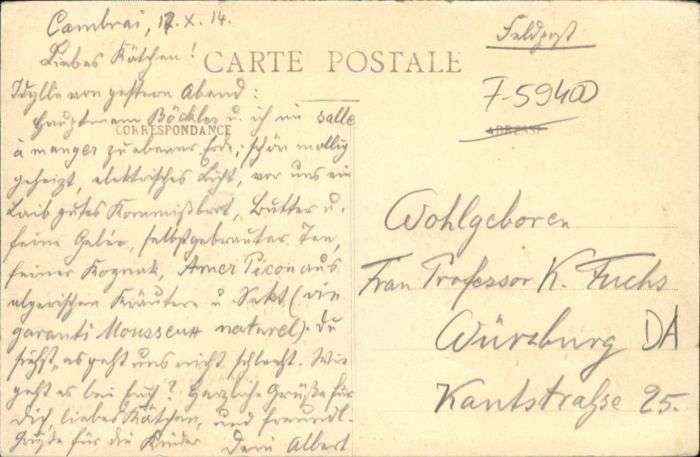 Cambrai, 17. X. 14.
Liebes Kätchen!
Idylle von gestern Abend:
Hauptmann Böckler u. ich im salle
à manger zu ebener Erde; schön mollig
geheizt, elektrisches Licht, vor uns ein
Laib gutes Kommißbrot, Butter u.
feine Gelée, selbstgebrauter Tee,
feiner Kognak, Amer Picon aus
algerischen Kräutern u. Sekt (vin
garanti Mousseux naturel). Du
siehst, es geht uns nicht schlecht. Wie
geht es bei Euch? Herzliche Grüße für
Dich, liebes Kätchen, und freundl.
Grüße für die Kinder Dein Albert
CARTE POSTALE
CORRESPONDANCE
Feldpost
7-594a
ADRESSE
Wohlgeboren
Frau Professor K. Fuchs
Würzburg DA
Kantstraße 25.